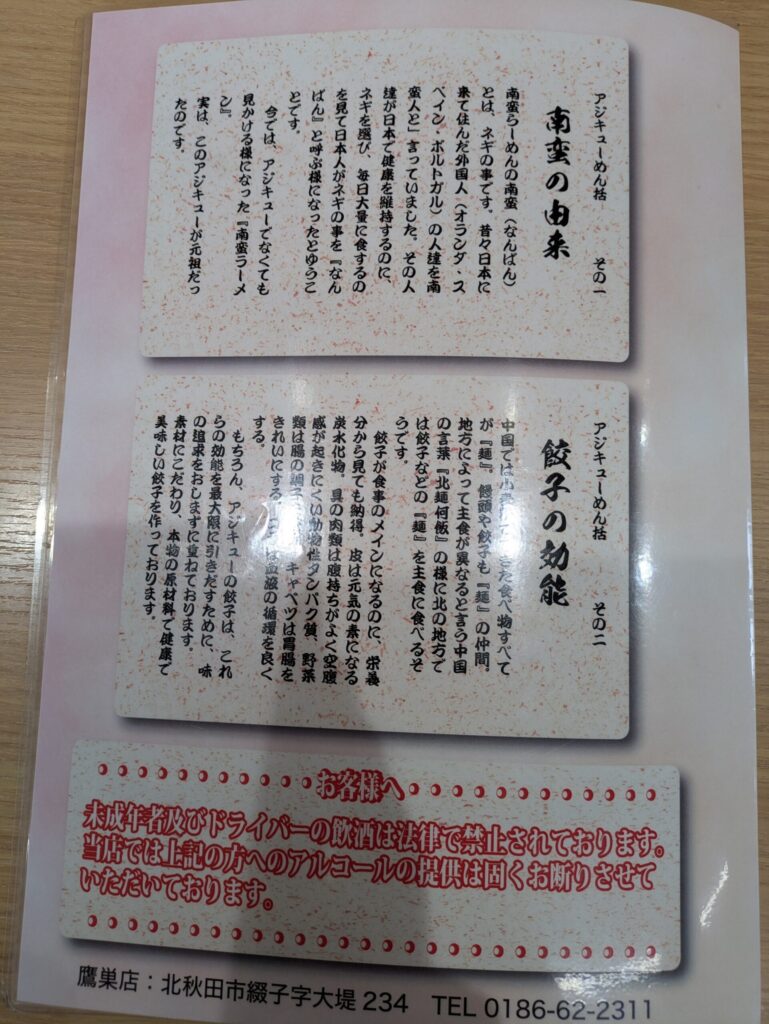 アジキューめん括 その一
南蛮の由来
南蛮らーめんの南蛮(なんばん)
とは、ネギの事です。昔々日本に
来て住んだ外国人(オランダ・ス
ペイン、ポルトガル)の人達を南
蛮人と」言っていました。その人
達が日本で健康を維持するのに、
ネギを選び、毎日大量に食するの
を見て日本人がネギの事を『なん
ばん』と呼ぶ様になったとゆうこ
とです。
今では、アジキューでなくても
見かける様になった『南蛮ラーメ
ン』。
実は、このアジキューが元祖だっ
たのです。
アジキューめん括 その二
餃子の効能
中国では小麦 きた食べ物すべて
が『麺』。饅頭や餃子も『麺』の仲間。
地方によって主食が異なると言う中国
の言葉『北麺何飯』の様に北の地方で
は餃子などの『麺』を主食に食べるそ
うです。
餃子が食事のメインになるのに、栄養
分から見ても納得。皮は元気の素になる
炭水化物。具の肉類は腹持ちがよく空腹
感が起きにくい動物性タンパク質、野菜
類は腸の調子 キャベツは胃腸を
きれいにする は血液の循環を良く
する。
もちろん、アジキューの餃子は、これ
らの効能を最大限に引きだすために、味
の追求をおしまずに重ねております。
素材にこだわり、本物の原材料で健康で
美味しい餃子を作っております。
お客様へ
未成年者及びドライバーの飲酒は法律で禁止されております。
当店では上記の方へのアルコールの提供は固くお断りさせて
いただいております。
鷹巣店:北秋田市綴子字大堤 234 TEL 0186-62-2311